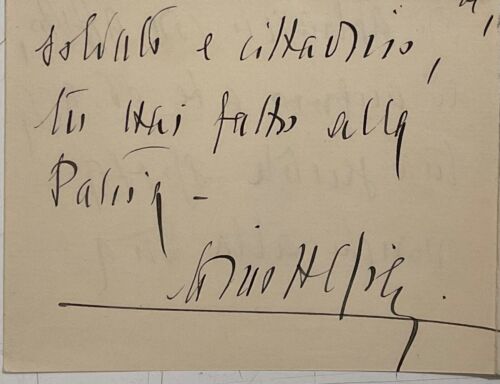 soldato e cittadino,
tu hai fatto alla
Patria -